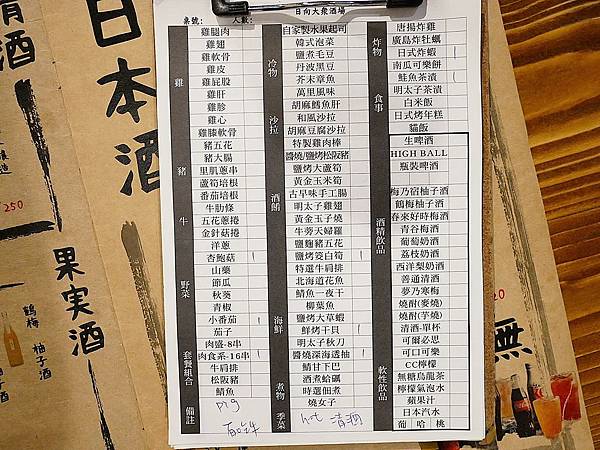 日向大衆酒場
桌號: 人數:
雞
雞腿肉
雞翅
雞軟骨
雞皮
雞屁股
雞肝
雞胗
雞心
雞膝軟骨
豬
豬五花
豬大腸
里肌蔥串
蘆筍培根
番茄培根
牛
牛肋條
五花蔥捲
金針菇捲
野菜
洋蔥
杏鮑菇
山藥
節瓜
秋葵
青椒
小番茄
茄子
套餐組合
肉盛-8串
肉食系-16串
牛肩排
松阪豬
鯖魚
備註
冷物
自家製水果起司
韓式泡菜
鹽煮毛豆
丹波黑豆
芥末章魚
萬里風味
胡麻鱈魚肝
沙拉
和風沙拉
胡麻豆腐沙拉
酒餚
特製雞肉棒
醬燒/鹽烤松阪豬
鹽烤大蘆筍
黃金玉米筍
古早味手工腸
明太子雞翅
黃金玉子燒
牛蒡天婦羅
鹽麴豬五花
鹽烤筊白筍
特選牛肩排
海鮮
北海道花魚
鯖魚一夜干
柳葉魚
鹽烤大草蝦
鮮烤干貝
明太子秋刀
醬燒深海透抽
鯖甘下巴
煮物
酒煮蛤蠣
時選佃煮
燒女子
季菜
炸物
唐揚炸雞
廣島炸牡蠣
日式炸蝦
南瓜可樂餅
食事
鮭魚茶漬
明太子茶漬
白米飯
日式烤年糕
貓飯
酒精飲品
生啤酒
HIGH BALL
瓶裝啤酒
梅乃宿柚子酒
鶴梅柚子酒
春來好時梅酒
青谷梅酒
葡萄奶酒
荔枝奶酒
西洋梨奶酒
善通清酒
夢乃寒梅
燒酎(麥燒)
燒酎(芋燒)
清酒-單杯
軟性飲品
可爾必思
可口可樂
CC檸檬
無糖烏龍茶
檸檬氣泡水
蘋果汁
日本汽水
葡 哈 桃
hot 清酒
日本酒
250
果実酒
鶴梅
柚子酒
250
無